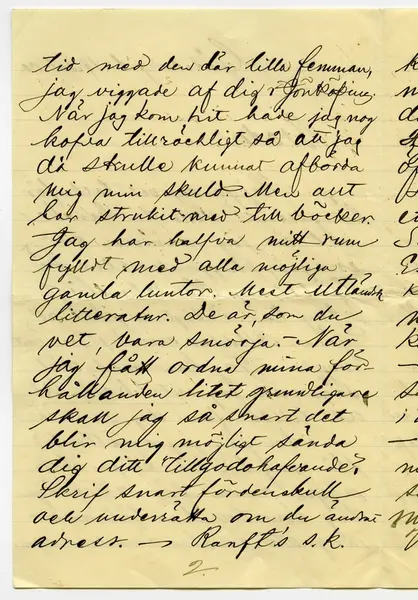 tid med den där lilla femman,
jag viggade af dig i Jönköping.
När jag kom hit hade jag nog
kofva tillräckligt så att jag
då skulle kunnat afbörda
mig min skuld. Men allt
har strukit med till böcker.
Jag har halfva mitt rum
fylldt med alla möjliga
gamla luntor. Mest Utländsk
litteratur. De är, som du
vet, bara smörja. – När
jag fått ordna mina för-
hållanden litet grundligare
skall jag så snart det
blir mig möjligt sända
dig ditt "Tillgodohafvande".
Skrif snart för den skull
och underrätta om du ändrat
adress. — Ranft's s.k.
2.